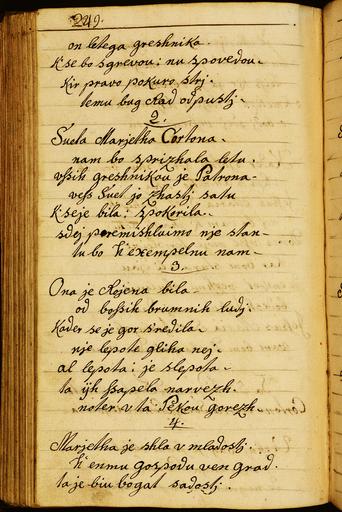 249.
on letega greshnika.
K se bo sgrevou: nu spovedou.
Kir pravo pokuro strj.
temu bug Rad odpustj.
2.
Sueta Marjetha Cortona.
nam bo sprizhala letu.
vssih greshnikou je Patrona.
vess Suet jo zhastj satu
K se je bila: spokorila.
sdej premishluimo nje stan
tu bo k'exempelnu nam.
3.
Ona je Rojena bila
od bossih brumnih ludj:
Kader se je gor sredila.
nje lepote gliha nej.
al lepota: je slepota.
ta ijh shapela narvezh.
noter v ta Pekou gorezh.
4.
Marjetha je shla v mladostj.
k'enmu gospodu ven grad.
ta je biu bogat sadostj.